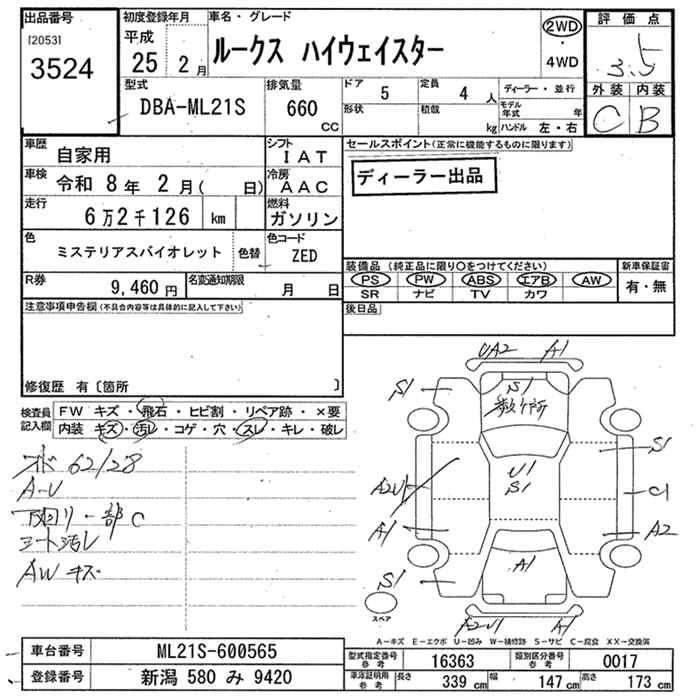 出品番号
[2053]
3524
初度登録年月
平成
25年 2月
車名・グレード
ルークス ハイウェイスター
2WD
・
4WD
評価点
3.5
外装 内装
C B
型式
DBA-ML21S
排気量
660
CC
ドア 5
形状
定員 4 人
積載 kg
ディーラー・並行
モデル年式 年
ハンドル 左・右
車歴 自家用
シフト IAT
車検 令和 8年 2月( 日)
冷房 AAC
走行 6万2千126 km
燃料 ガソリン
色 ミステリアスバイオレット 色替
色コード ZED
R券 9,460円
名変通知期限 月 日
セールスポイント(正常に機能するものに限ります)
ディーラー出品
装備品 (純正品に限り○をつけてください)
PS PW ABS エアB AW
SR ナビ TV カワ
新車保証書
有・無
後日品
注意事項申告欄(不具合内容等は具体的に記入して下さい)
修復歴 有〔箇所 〕
検査員記入欄
FW キズ・飛石・ヒビ割・リペア跡・×要
内装 キズ・汚レ・コゲ・穴・スレ・キレ・破レ
62128
A-U
下回リ一部C
シート汚レ
AWキズ
UA2 A1
S1 S1
数ケ所
S1
U1
S1
A2U1 C1
A1 A2
A1
S1 S1
A2U1 A1
スペア
A-キズ E-エクボ U-凹み W-補修跡 S-サビ C-腐食 XX-交換済
車台番号 ML21S-600565
登録番号 新潟 580 み 9420
型式指定番号 参考 16363
類別区分番号 参考 0017
車庫証明用 参考 長さ 339 cm 幅 147 cm 高さ 173 cm